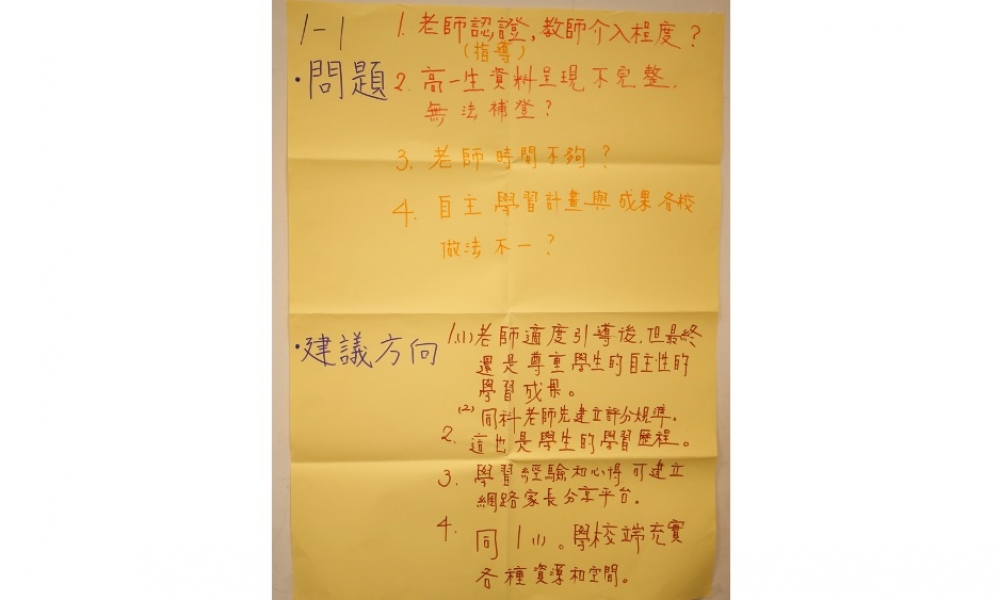 1-1
·問題
1. 老師認證,教師介入程度?
(指導)
2. 高一生資料呈現不完整,
無法補登?
3. 老師時間不夠?
4. 自主學習計畫與成果各校
做法不一?
·建議方向
1.(1)老師適度引導後,但最終
還是尊重學生的自主性的
學習成果。
(2)同科老師先建立評分規準.
2. 這也是學生的學習歷程。
3. 學習經驗和心得可建立
網路家長分享平台.
4. 同1(1)。學校端充實
各種資源和空間。